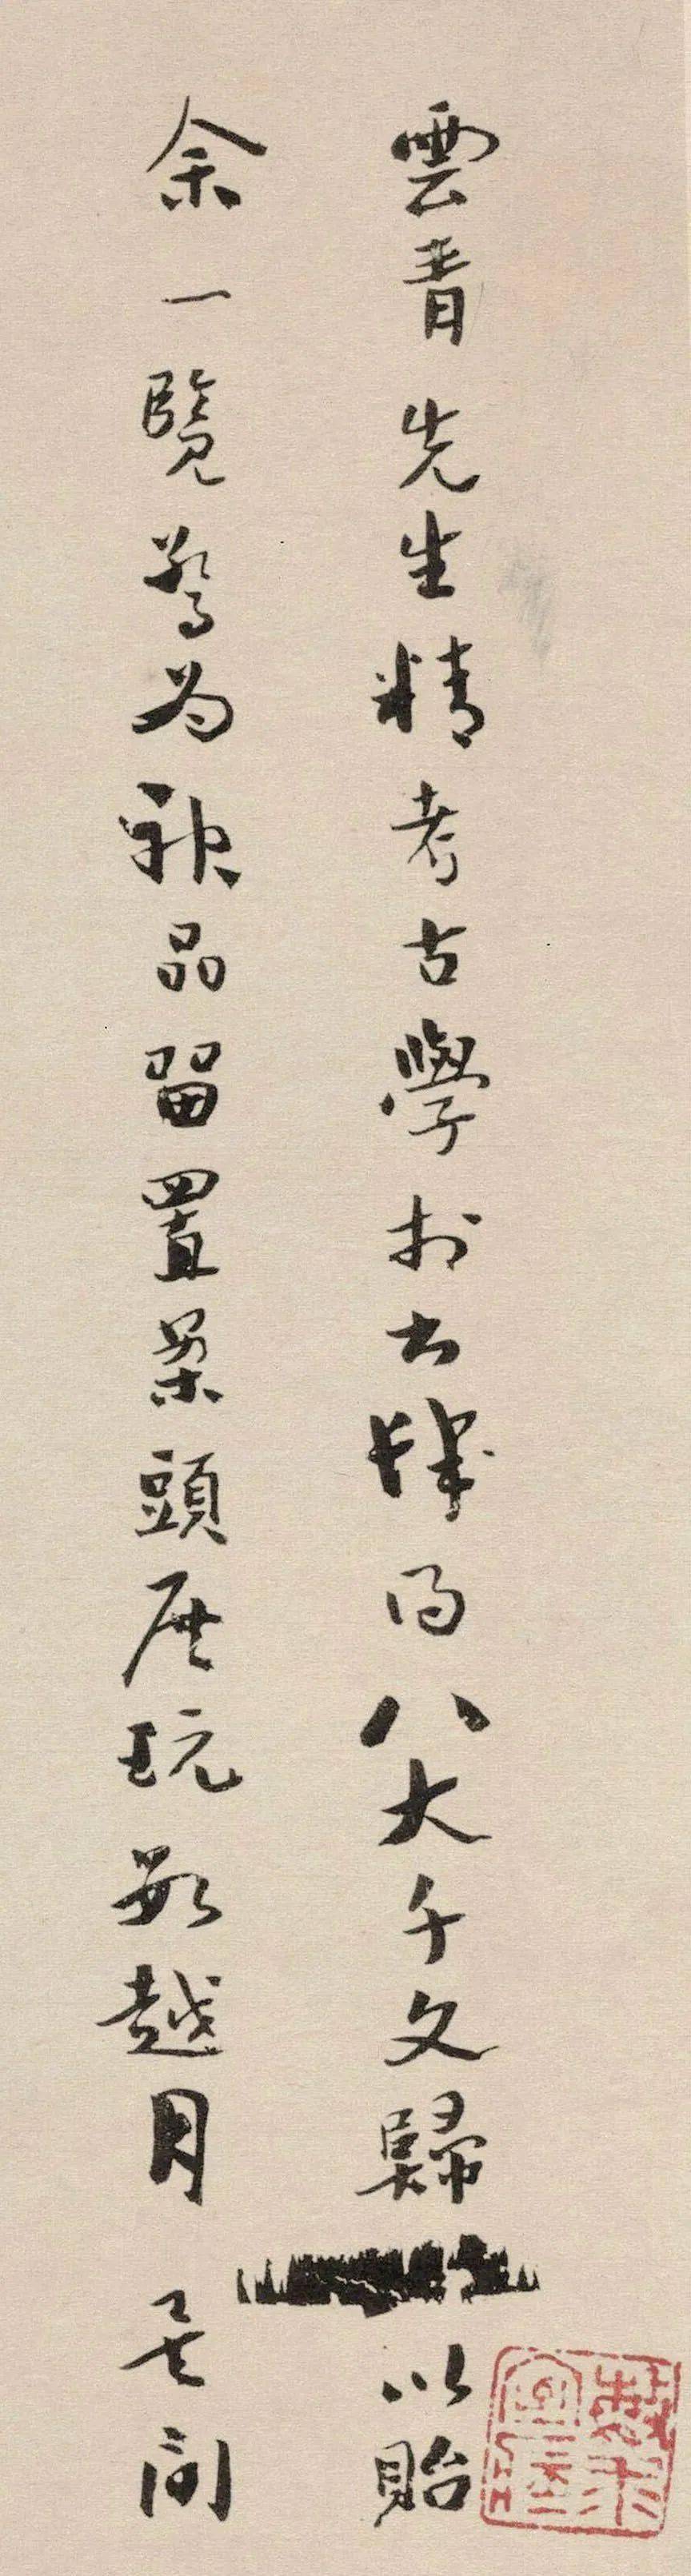 雲青先生精考古學於書肆得八大千文歸以貽
余一覽驚為神品留置案頭展玩數越月間